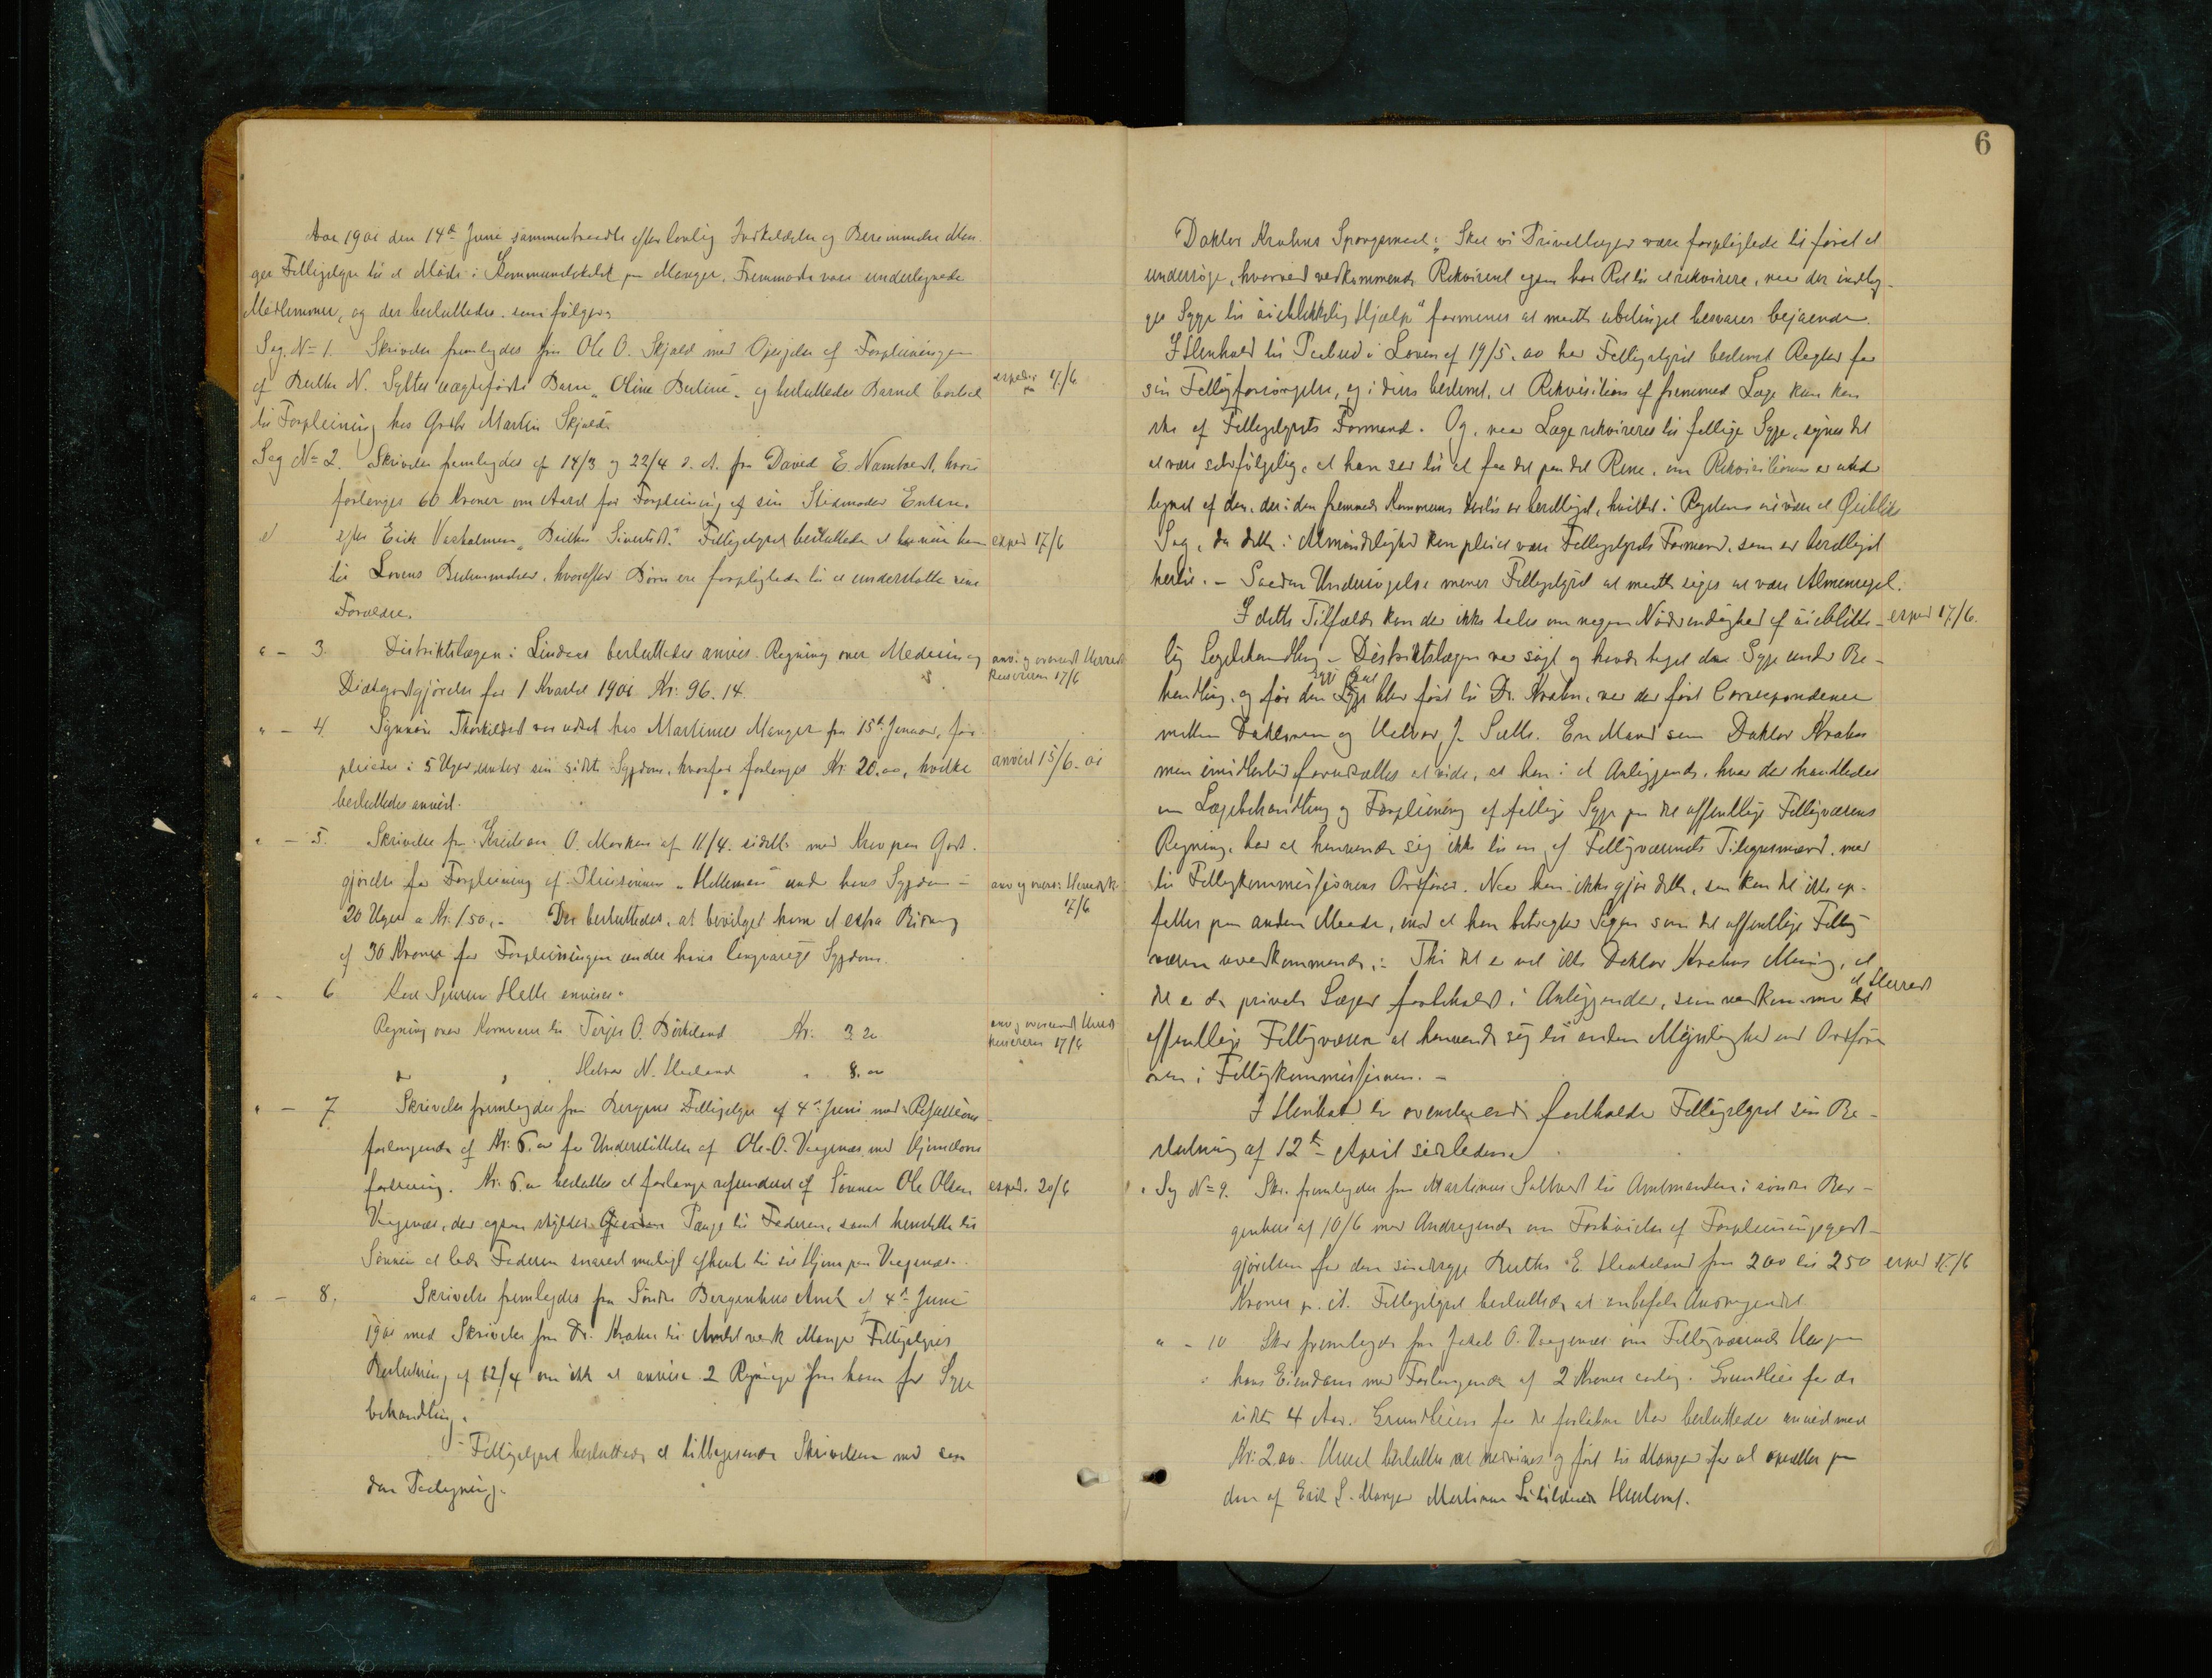 Aar 1901 den 14de Juni sammentraadte efter lovlig Indkaldelse og Berammelse Man-
ger Fattigstyre til et Møde i Kommunelokalet paa Manger. Fremmødte vare undertegnede
Medlemmer, og der besluttedes som følger:
Sag. No 1. Skrivelse fremlagdes fra Ole O. Skjold med Opsigelse af Forpleiningen
af Berthe N. Syltes uægtefødte Barn "Oline Berline" og besluttedes Barnet bortsat
til Forpleining hos Martin Skjold.
exped. 17/6
Sag No 2. Skrivelse fremlagdes af 14/3 og 22/4 d. A. fra David E. Namtvedt, hvori
forlanges 60 Kroner om Aaret for Forpleining af sin Stedmoder Enken
efter Erik "Brithe Sivertsd." Fattigstyret besluttede at henvise ham
exped 17/6
til Lovens Bestemmelser, hvorefter Børn ere forpligtede til at understøtte sine
Forældre.
" - 3. Distriktslægen i Lindaas besluttedes anvist Regning over Medicin og
Diætgodtgjørelse for 1 Kvartal 1901 Kr. 96.14.
anv. og oversendt Herreds
kassereren 17/6
" - 4. Synnøve Thorkildsd. var udsat hos Martinus Manger fra 15de Januar, for-
pleiedes i 5 Uger under sin sidste Sygdom, hvorfor forlanges Kr. 20.00, hvilke
besluttedes anvist.
anvist 15/6. 01
" - 5. Skrivelse fra O. Marken af 11/4 sidstl. med Krav paa Godt-
gjørelse for Forpleining af Pleiesønnen "Hellemann" under hans Sygdom -
20 Uger a Kr. 1.50. - Der besluttedes at bevilget ham et extra Bidrag
af 30 Kroner for Forpleiningen under hans langvarige Sygdom.
anv og overs. Herredsk.
17/6
" - 6 Sjursen Helle anvises:
Regning over Kornvarer til Terjer O. Birkeland Kr. 3.20
" " " Halvor N. Husland " 8.00
anv og oversendt Herreds
kassereren 17/6
" - 7 Skrivelse fremlagdes fra Bergens Fattigstyre af 4de Juni med Refusions-
forlangende af Kr. 6.00 for Understøttelse af Ole O. Vaagenæs med Hjemstavns
fordring. Kr. 6.00 besluttes at forlange refunderet af Sønnen Ole Olsen
exped. 20/6
Vaagenæs, der ogsaa skylder Penge til Faderen, samt henstille til
Sønnen at lade Faderen snarest muligt afhente til sit Hjem paa Vaagenæs.
" - 8. Skrivelse fremlagdes fra Søndre Bergenhus Amt af 4de Juni
1901 med Skrivelse fra Dr. Krohn til Amtet vedk Manger Fattigstyres
Beslutning af 12/4 om ikke at anvise 2 Regninger fra ham for Syge
behandling.
- Fattigstyret besluttede at tilbagesende Skrivelsen med saa
dan Paategning:
6
Doktor Krohns Spørgsmaal: "Skal vi Privatlæger være forpligtede til først at
undersøge, hvorvidt vedkommende Rekvirent ogsaa har Ret til at rekvirere, naar der indlæg-
ges Syge til øieblikkelig Hjælp" formenes at maatte ubetinget besvares bejaende.
I Henhold til Paabud i Loven af 19/5. 00 har Fattigstyret bestemt Regler for
sin Fattigforsørgelse, og i disse bestemt, at Rekvisition af fremmed Læge kun kan
ske af Fattigstyrets Formand. Og, naar Læge rekvireres til fattige Syge, synes det
at være selvfølgelig, at han ser til at faa det paa det Rene, om Rekvisitionen er under
tegnet af den, der i den fremmede Kommune dertil er berettiget, hvilket i Reglen vil være et Øiebliks
Sag, da dette i Almindelighed kun pleier være Fattigstyrets Formand, som er berettiget
hertil. - Saadan Undersøgelse mener Fattigstyret at maatte siges at være Almenregel.
I dette Tilfælde kan der ikke tales om nogen Nødvendighed af øieblikke-
exped 17/6.
lig Lægebehandling - Distriktslægen var søgt og havde taget den Syge under Be-
handling, og før den syge Gut blev ført til Dr. Krohn, var der ført Correspondence
mellem Doktoren og Halvor J. Sætle. En Mand som Doktor Krohn
maa imidlertid forudsættes at vide, at han i et Anliggende, hvor der handledes
om Lægebehandling og Forpleining af fattige Syge paa det offentlige Fattigvæsens
Regning, har at henvende sig ikke til en af Fattigvæsenets Tilsynsmænd, men
til Fattigkommissionens Ordfører. Naar han ikke gjør dette, saa kan det ikke op-
fattes paa anden Maade, end at han betragter Sagen som det offentlige Fattig
væsen uvedkommende: Thi det er vel ikke Doktor Krohns Mening, at
det er de private Læger forbeholdt i Anliggender, som vedkommer et Herreds
offentlige Fattigvæsen at henvende sig til anden Myndighed end Ordføre
ren i Fattigkommissionen. -
I Henhold til ovenstaaende fastholder Fattigstyret sin Be-
slutning af 12te April sidstleden.
" Sag No 9. Skr. fremlagdes fra Martinus Saltvedt til Amtmanden i søndre Ber-
genhus af 10/6 med Andragende om Forhøielse af Forpleiningsgodt-
gjørelsen for den sindssyge Berthe E. Haukeland fra 200 til 250
exped 17/6
Kroner pr. A. Fattigstyret besluttede at anbefale Andragendet.
" - 10 Skr fremlagdes fra Jakob O. Vaagenæs om Fattigvæsenets Hus paa
hans Eiendom med Forlangende af 2 Kroner aarlig i Grundleie for de
sidste 4 Aar. Grundleien for de forløbne Aar besluttedes anvist med
Kr. 2.00. Huset besluttes at nedrives og ført til Manger for at opsættes paa
den af Erik S. Manger Hustomt.